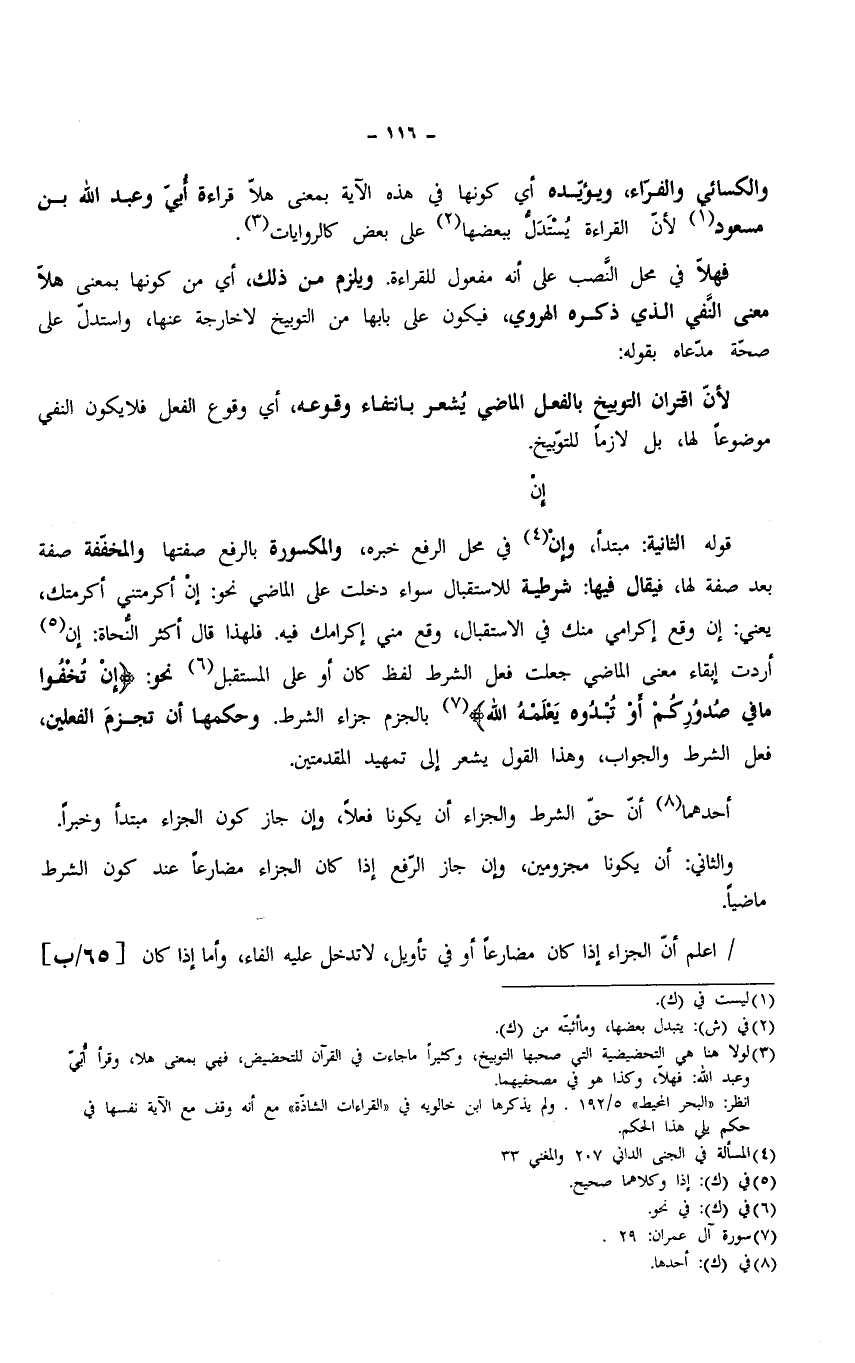 - ١١٦ -
والكسائي والفـرّاء، ويـؤيّـده أي كونها في هذه الآية بمعنى هلاّ قراءة أُبيّ وعبـد الله بـن
مسعود(١) لأنّ القراءة يُسْتَدَلُّ ببعضها(٢) على بعض كالروايات(٣).
فهلاّ في محل النَّصب على أنه مفعول للقراءة. ويلزم مـن ذلك، أي من كونها بمعنى هلاّ
معنى النَّفي الـذي ذكـره الهروي، فيكون على بابها من التوبيخ لاخارجة عنها، واستدلّ على
صحّة مدّعاه بقوله:
لأنّ اقتران التوبيخ بالفعـل الماضي يُشعـر بـانتفـاء وقـوعـه، أي وقوع الفعل فلايكون النفي
موضوعاً لها، بل لازماً للتوّبيخ.
إِنْ
قوله الثانية: مبتدأ، وإنْ(٤) في محل الرفع خبره، والمكسورة بالرفع صفتها والمخفّفة صفة
بعد صفة لها، فيقال فيها: شرطيـة للاستقبال سواء دخلت على الماضي نحو: إنْ أكرمتني أكرمتك،
يعني: إن وقع إكرامي منك في الاستقبال، وقع مني إكرامك فيه. فلهذا قال أكثر النُّحاة: إن(٥)
أردت إبقاء معنى الماضي جعلت فعل الشرط لفظ كان أو على المستقبل(٦) نحو: ﴿إنْ تُخْفُـوا
مافي صُدُورِكُـمْ أَوْ تُبْـدُوه يَعْلَمْـهُ الله﴾(٧) بالجزم جزاء الشرط. وحكمهـا أن تجـزمَ الفعلين،
فعل الشرط والجواب، وهذا القول يشعر إلى تمهيد المقدمتين.
أحدهما(٨) أنّ حقّ الشرط والجزاء أن يكونا فعلاً، وإن جاز كون الجزاء مبتدأ وخبراً.
والثاني: أن يكونا مجزومين، وإن جاز الرّفع إذا كان الجزاء مضارعاً عند كون الشرط
ماضياً.
/ اعلم أنّ الجزاء إذا كان مضارعاً أو في تأويل، لاتدخل عليه الفاء، وأما إذا كان [ ٦٥/ب]
(١)ليست في (ك).
(٢)في (ش): يتبدل بعضها، وماأثبتّه من (ك).
(٣)لولا هنا هي التحضيضية التي صحبها التوبيخ، وكثيراً ماجاءت في القرآن للتحضيض، فهي بمعنى هلا، وقرأ أُبيّ
وعبد الله: فهلاّ، وكذا هو في مصحفيهما.
انظر: «البحر المحيط» ١٩٢/٥ . ولم يذكرها ابن خالويه في «القراءات الشاذّة» مع أنه وقف مع الآية نفسها في
حكم يلي هذا الحكم.
(٤)المسألة في الجنى الداني ٢٠٧ والمغني ٣٣
(٥)في (ك): إذا وكلاهما صحيح.
(٦)في (ك): في نحو.
(٧)سورة آل عمران: ٢٩ .
(٨)في (ك): أحدها.